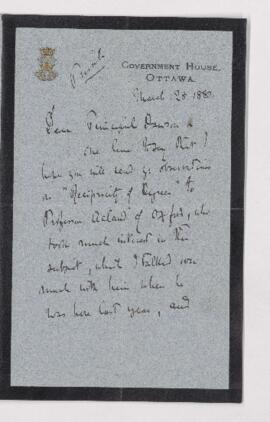 Private
GOVERNMENT HOUSE,
OTTAWA.
March 25 1880
Dear Principal Dawson
One line to say that I
hope you will send yr observations
on "Reciprocity of Degrees" to
Professor Acland of Oxford, who
took much interest in the
subject, which I talked over
much with him when he
was here last year, and